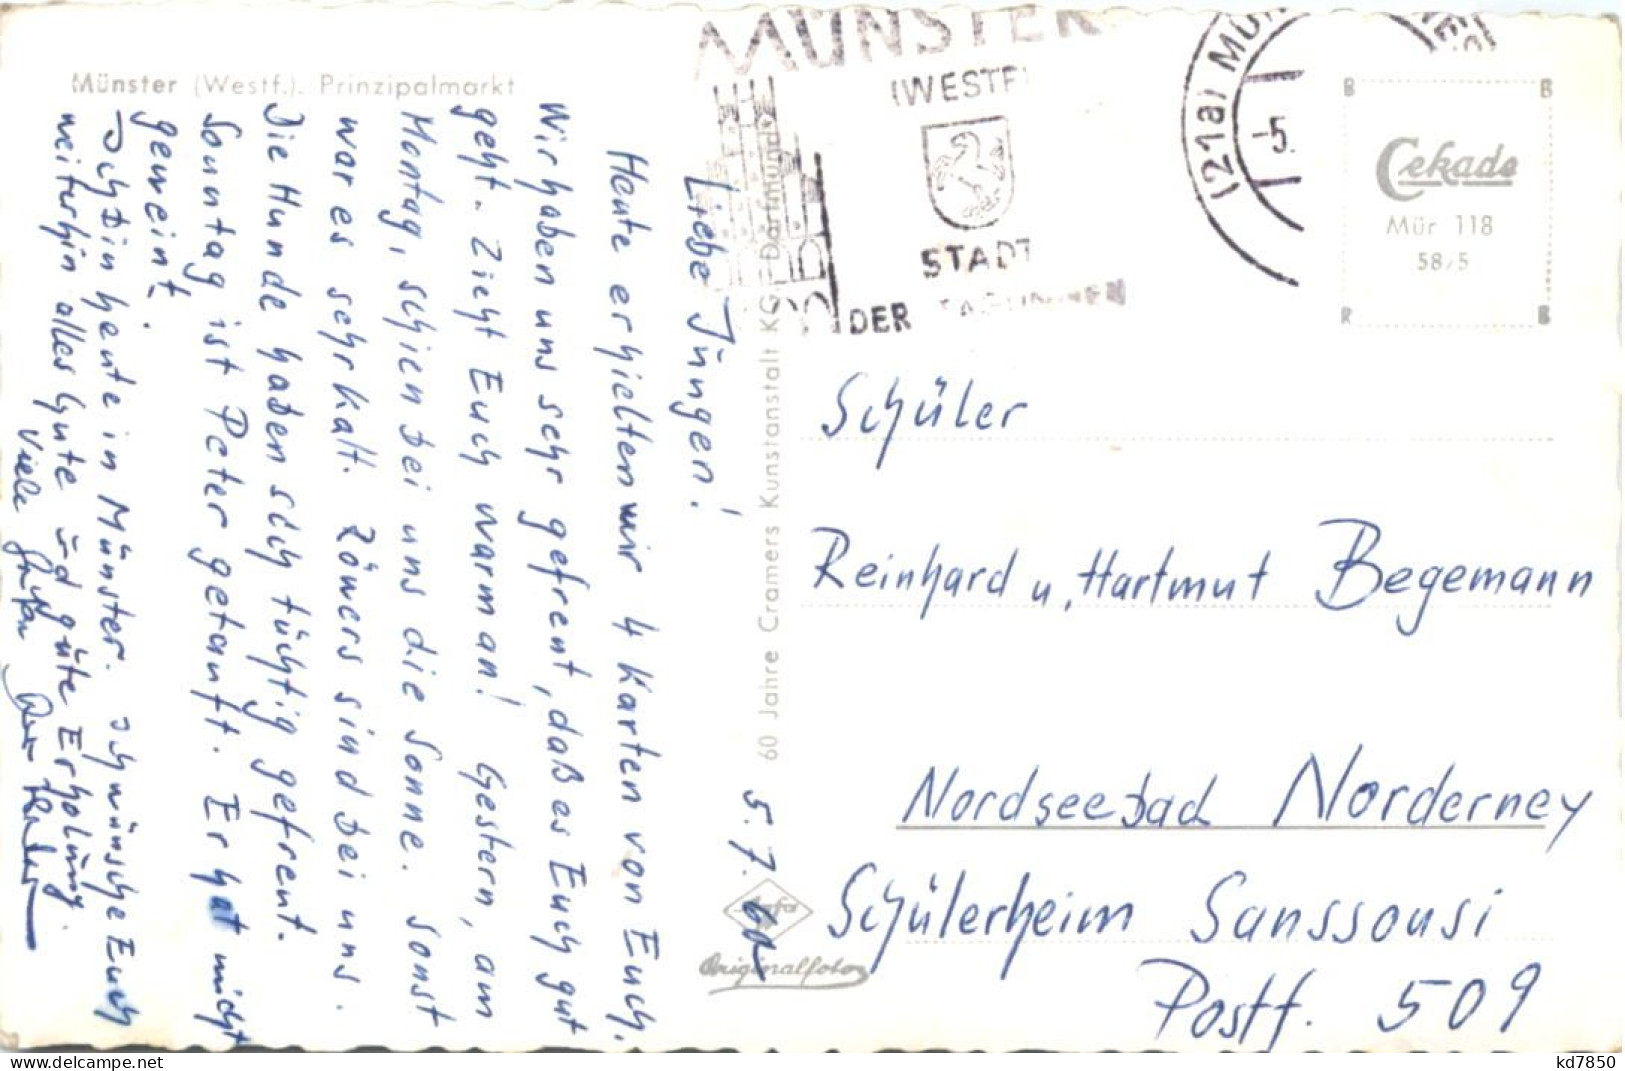 Münster (Westf.). Prinzipalmarkt
5.7.
Liebe Jüngen!
Heute erhielten wir 4 Karten von Euch.
Wir haben uns sehr gefreut, daß es Euch gut
geht. Zieht Euch warm an! Gestern, am
Montag, schien bei uns die Sonne. Sonst
war es sehr kalt. Zöwers sind bei uns.
Die Hunde haben sich tüchtig gefreut.
Sonntag ist Peter getauft. Er hat nicht
geweint.
Ich bin heute in Münster. Ich wünsche Euch
weiterhin alles Gute und gute Erholung.
Viele Grüße
60 Jahre Cramers Kunstanstalt KG, Dortmund
Agfa
Originalfoto
MÜNSTER
(WESTF)
STADT
DER TAGUNGEN
(21a) MÜN
-5.
B B
Cekade
Mür 118
58/5
R B
Schüler
Reinhard u. Hartmut Begemann
Nordseebad Norderney
Schülerheim Sanssousi
Postf. 509
delcampe.net
kd7850